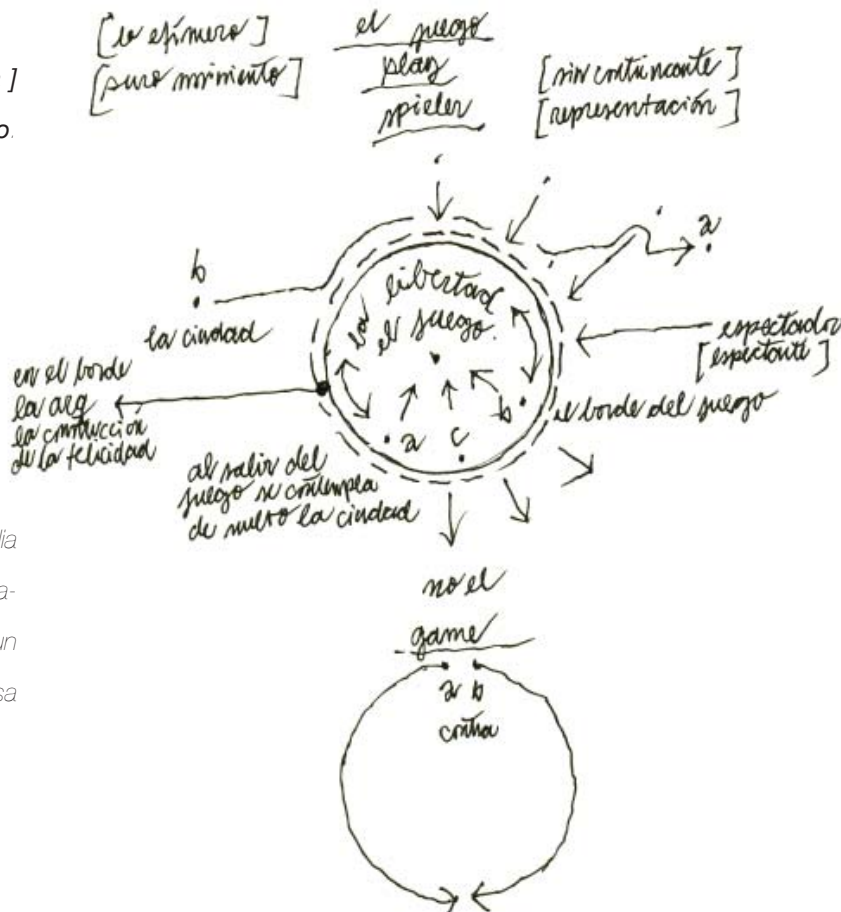 [lo efímero]
[puro movimiento]
el juego
play
spieler
[sin contrincante]
[representación]
]
o.
b
la ciudad
a
la libertad
el juego.
espectador
[espectante]
en el borde
la arq
la construcción
de la felicidad
a
c
b
el borde del juego
al salir del
juego se contempla
de nuevo la ciudad
dia
a-
un
sa
no el
game
a b
contra